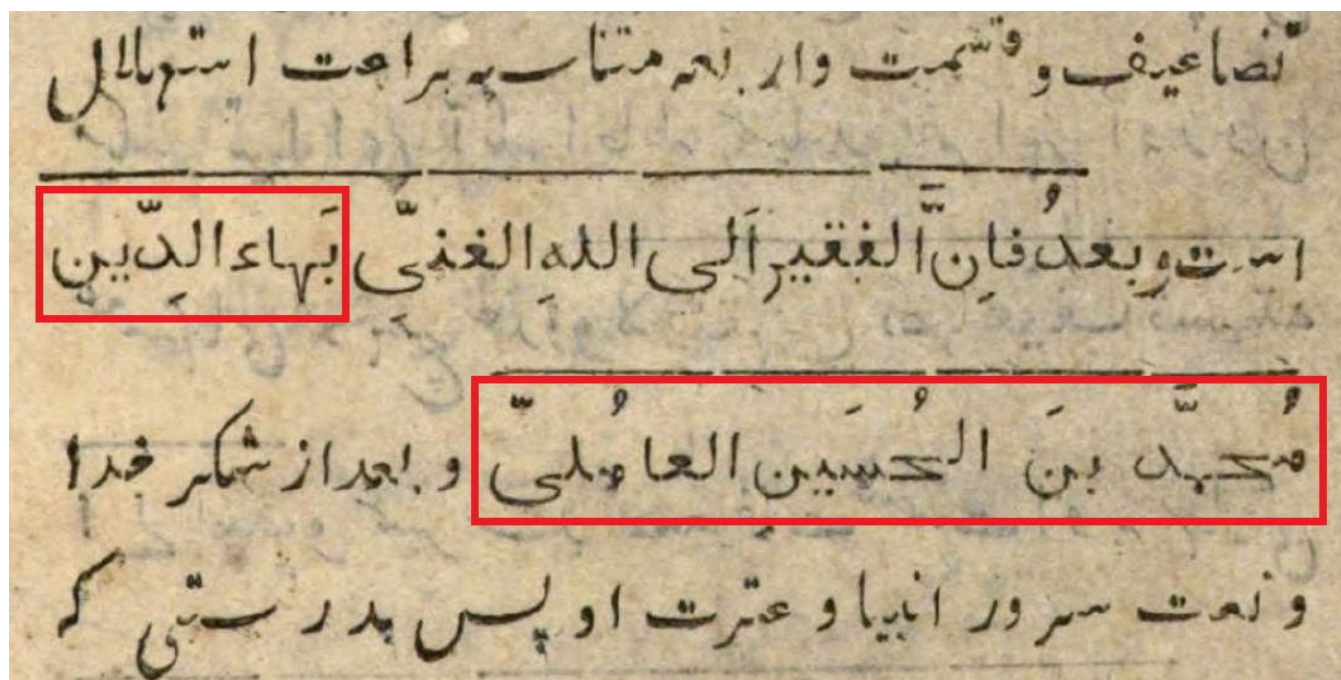 تضاعیف و قسمت و اربعه متناسبه براعت استهلال
است وبعدُ فاِنَّ الفقیر اَلی اللهِ الغنیِّ بَهاء الدِّین
مُحمَّد بنَ الحُسَینِ العامُلیّ و بعد از شکر خدا
و نعت سرور انبیا و عترت او پس بدرستی که